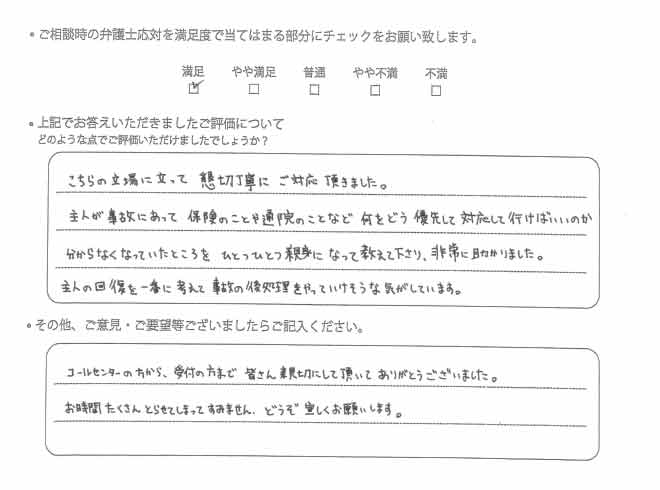 • ご相談時の弁護士応対を満足度で当てはまる部分にチェックをお願い致します。
満足 やや満足 普通 やや不満 不満
☑ □ □ □ □
• 上記でお答えいただきましたご評価について
どのような点でご評価いただけましたでしょうか？
こちらの立場に立って 懇切丁寧に ご対応 頂きました。
主人が事故にあって 保険のことや通院のことなど 何をどう 優先して 対応して行けばいいのか
分からなくなっていたところを ひとつひとつ親身になって教えて下さり、非常に助かりました。
主人の回復を一番に考えて 事故の後処理をやっていけそうな気がしています。
• その他、ご意見・ご要望等ございましたらご記入ください。
コールセンターの方から、受付の方まで 皆さん親切にして頂いて ありがとうございました。
お時間たくさんとらせてしまってすみません、どうぞ 宜しくお願いします。